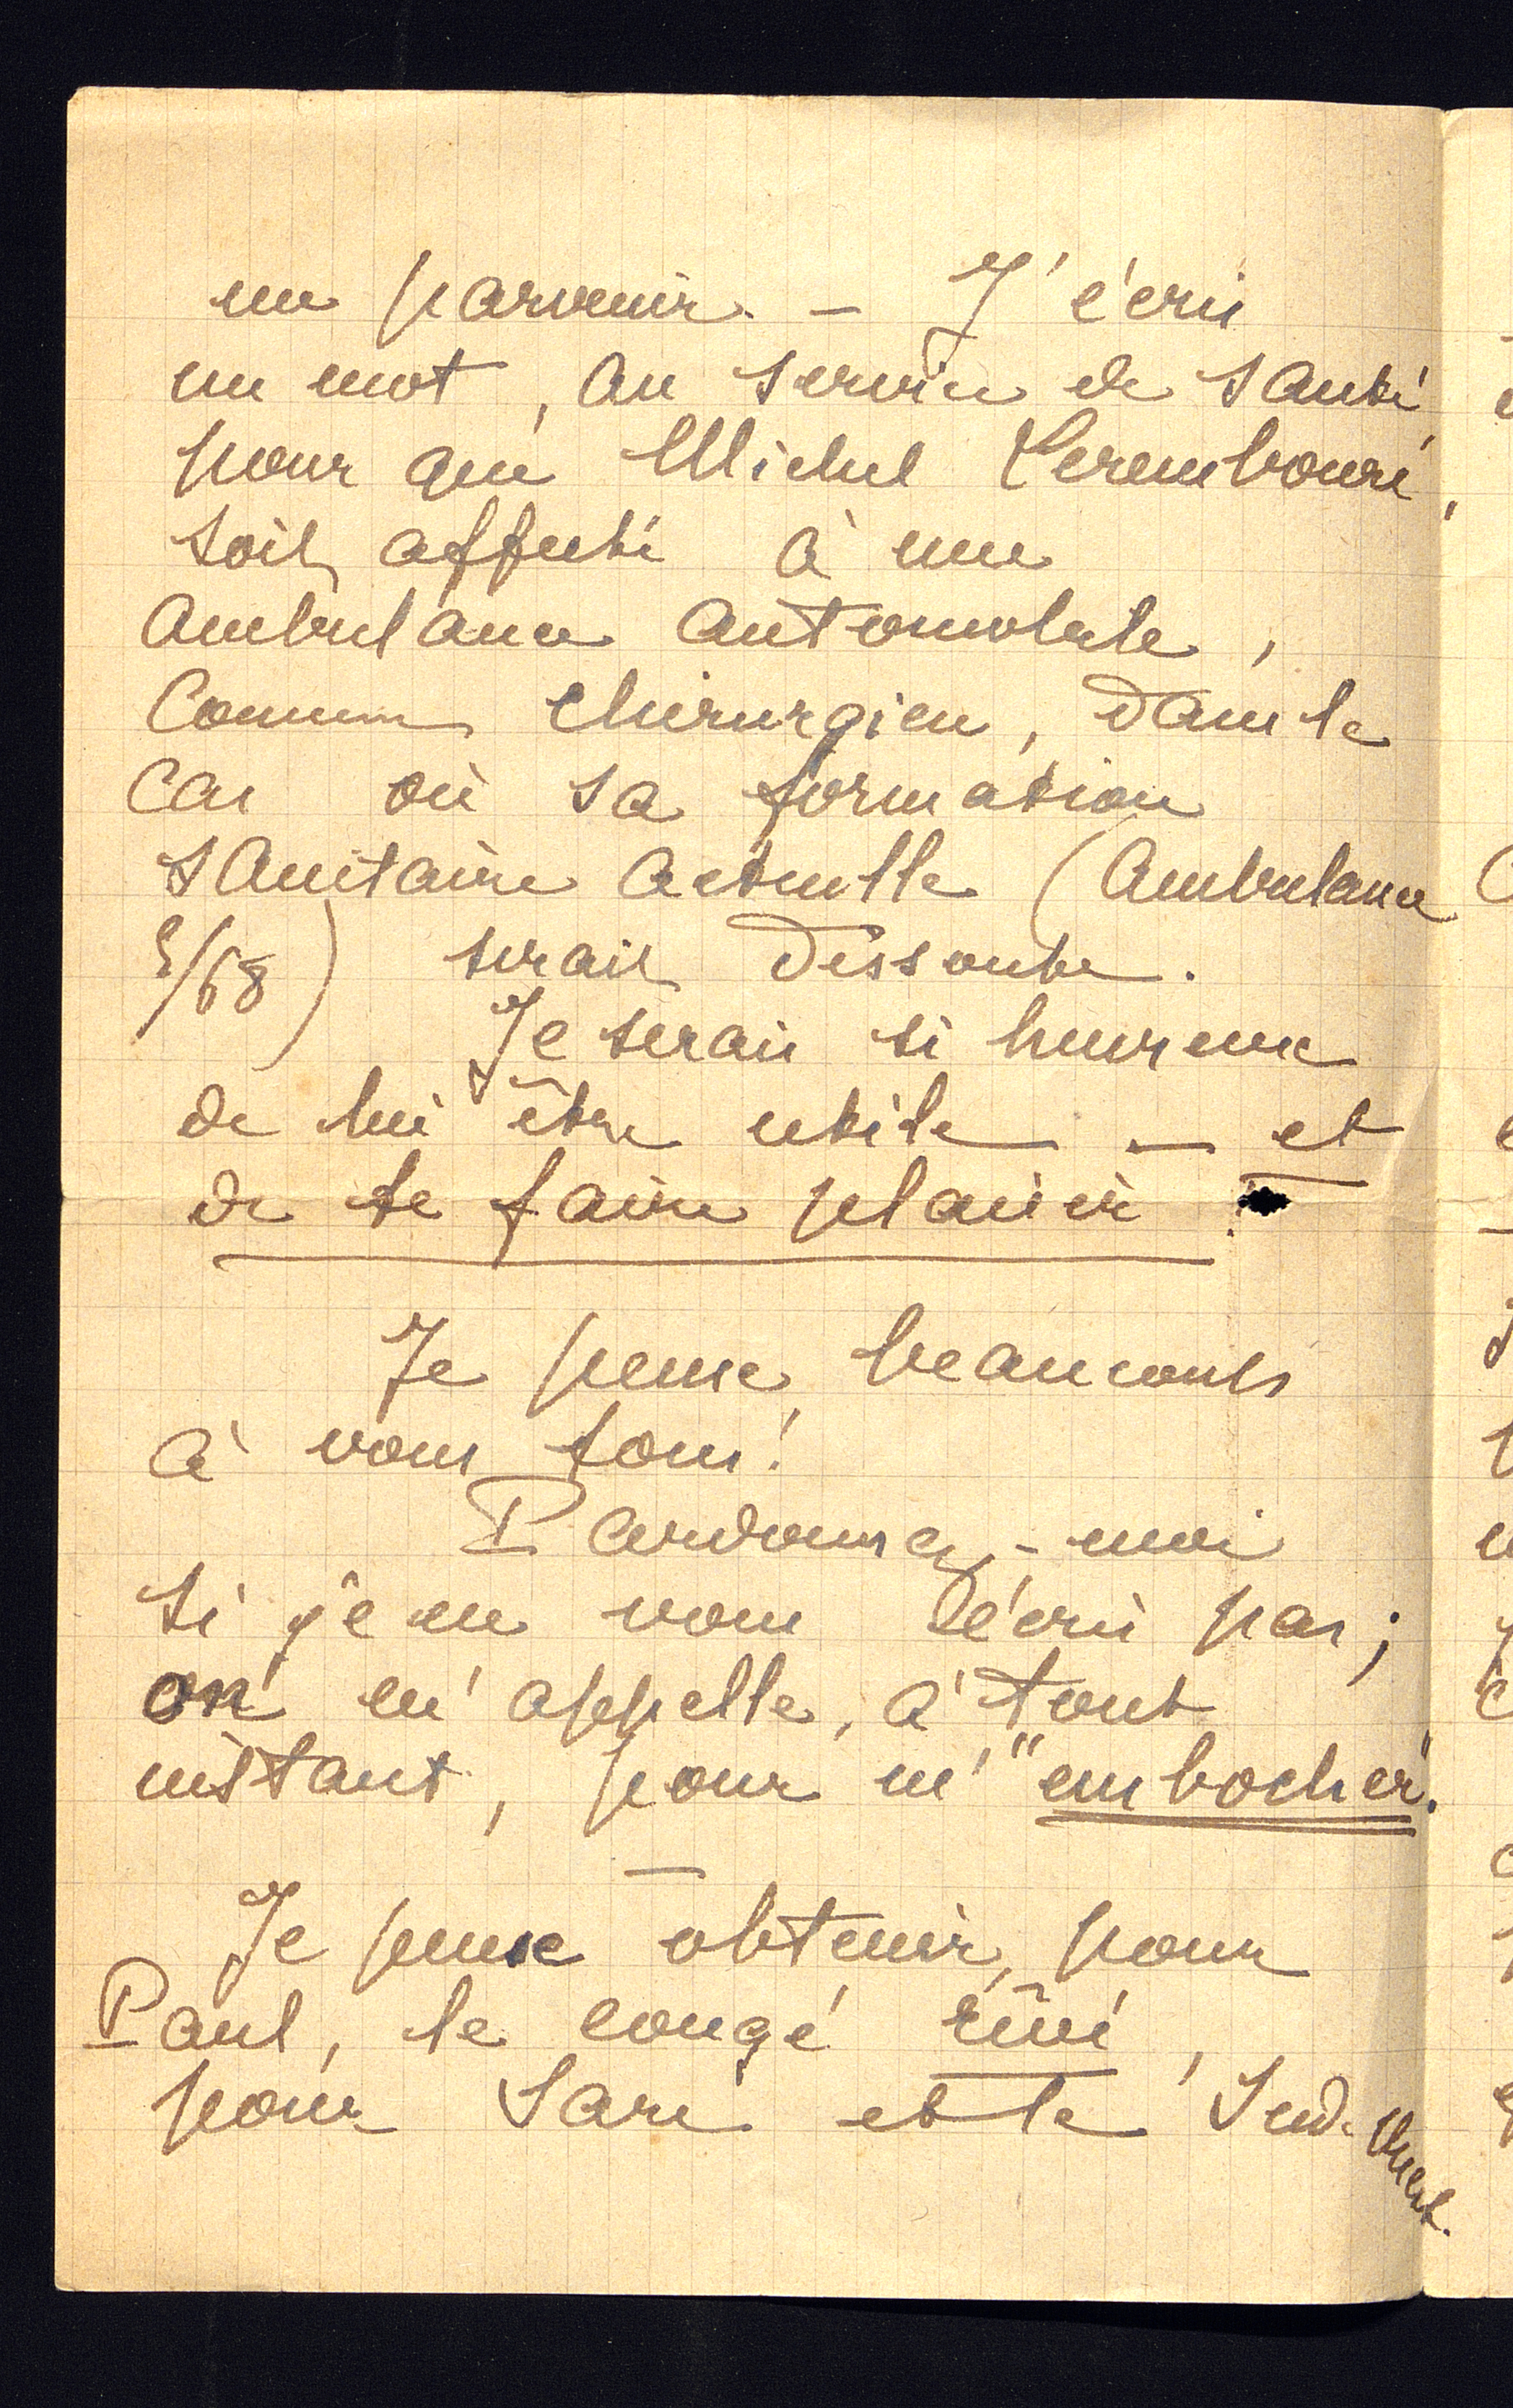 me parvenir. — J'écris
un mot, au service de santé,
pour que Michel Leremboure,
soit affecté à une
ambulance automobile,
comme chirurgien, dans le
cas où sa formation
sanitaire actuelle (Ambulance
/68) serait dissoute.
Je serais si heureux
de lui être utile — et
de te faire plaisir
Je pense beaucoup
à vous tous!
Pardonnez-moi
si je ne vous écris pas;
on m'appelle, à tout
instant, pour m'"embocher".
—
Je pense obtenir, pour
Paul, le congé rêvé,
pour Sare et le Sud-Ouest.